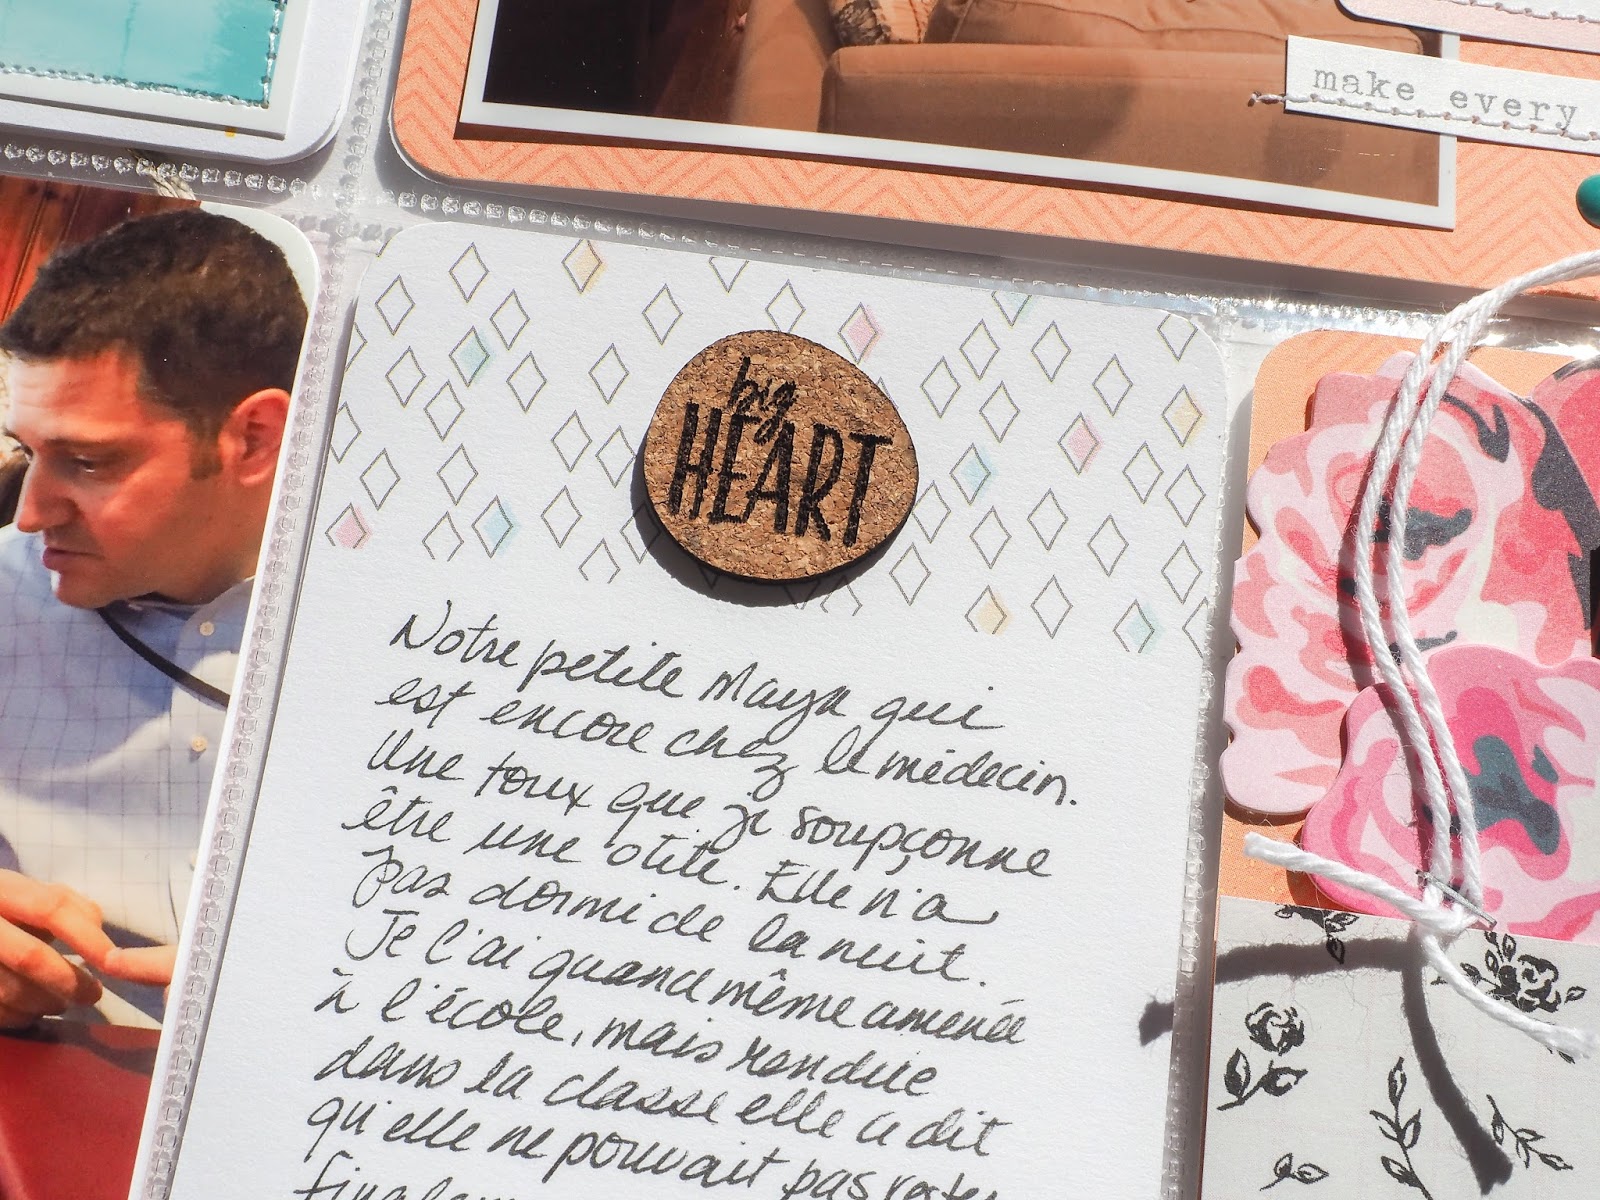 make every
big
HEART
Notre petite Maya qui
est encore chez le médecin.
Une toux que je soupçonne
être une otite. Elle n'a
pas dormi de la nuit.
Je l'ai quand même amenée
à l'école, mais rendue
dans la classe elle a dit
qu'elle ne pouvait pas rester